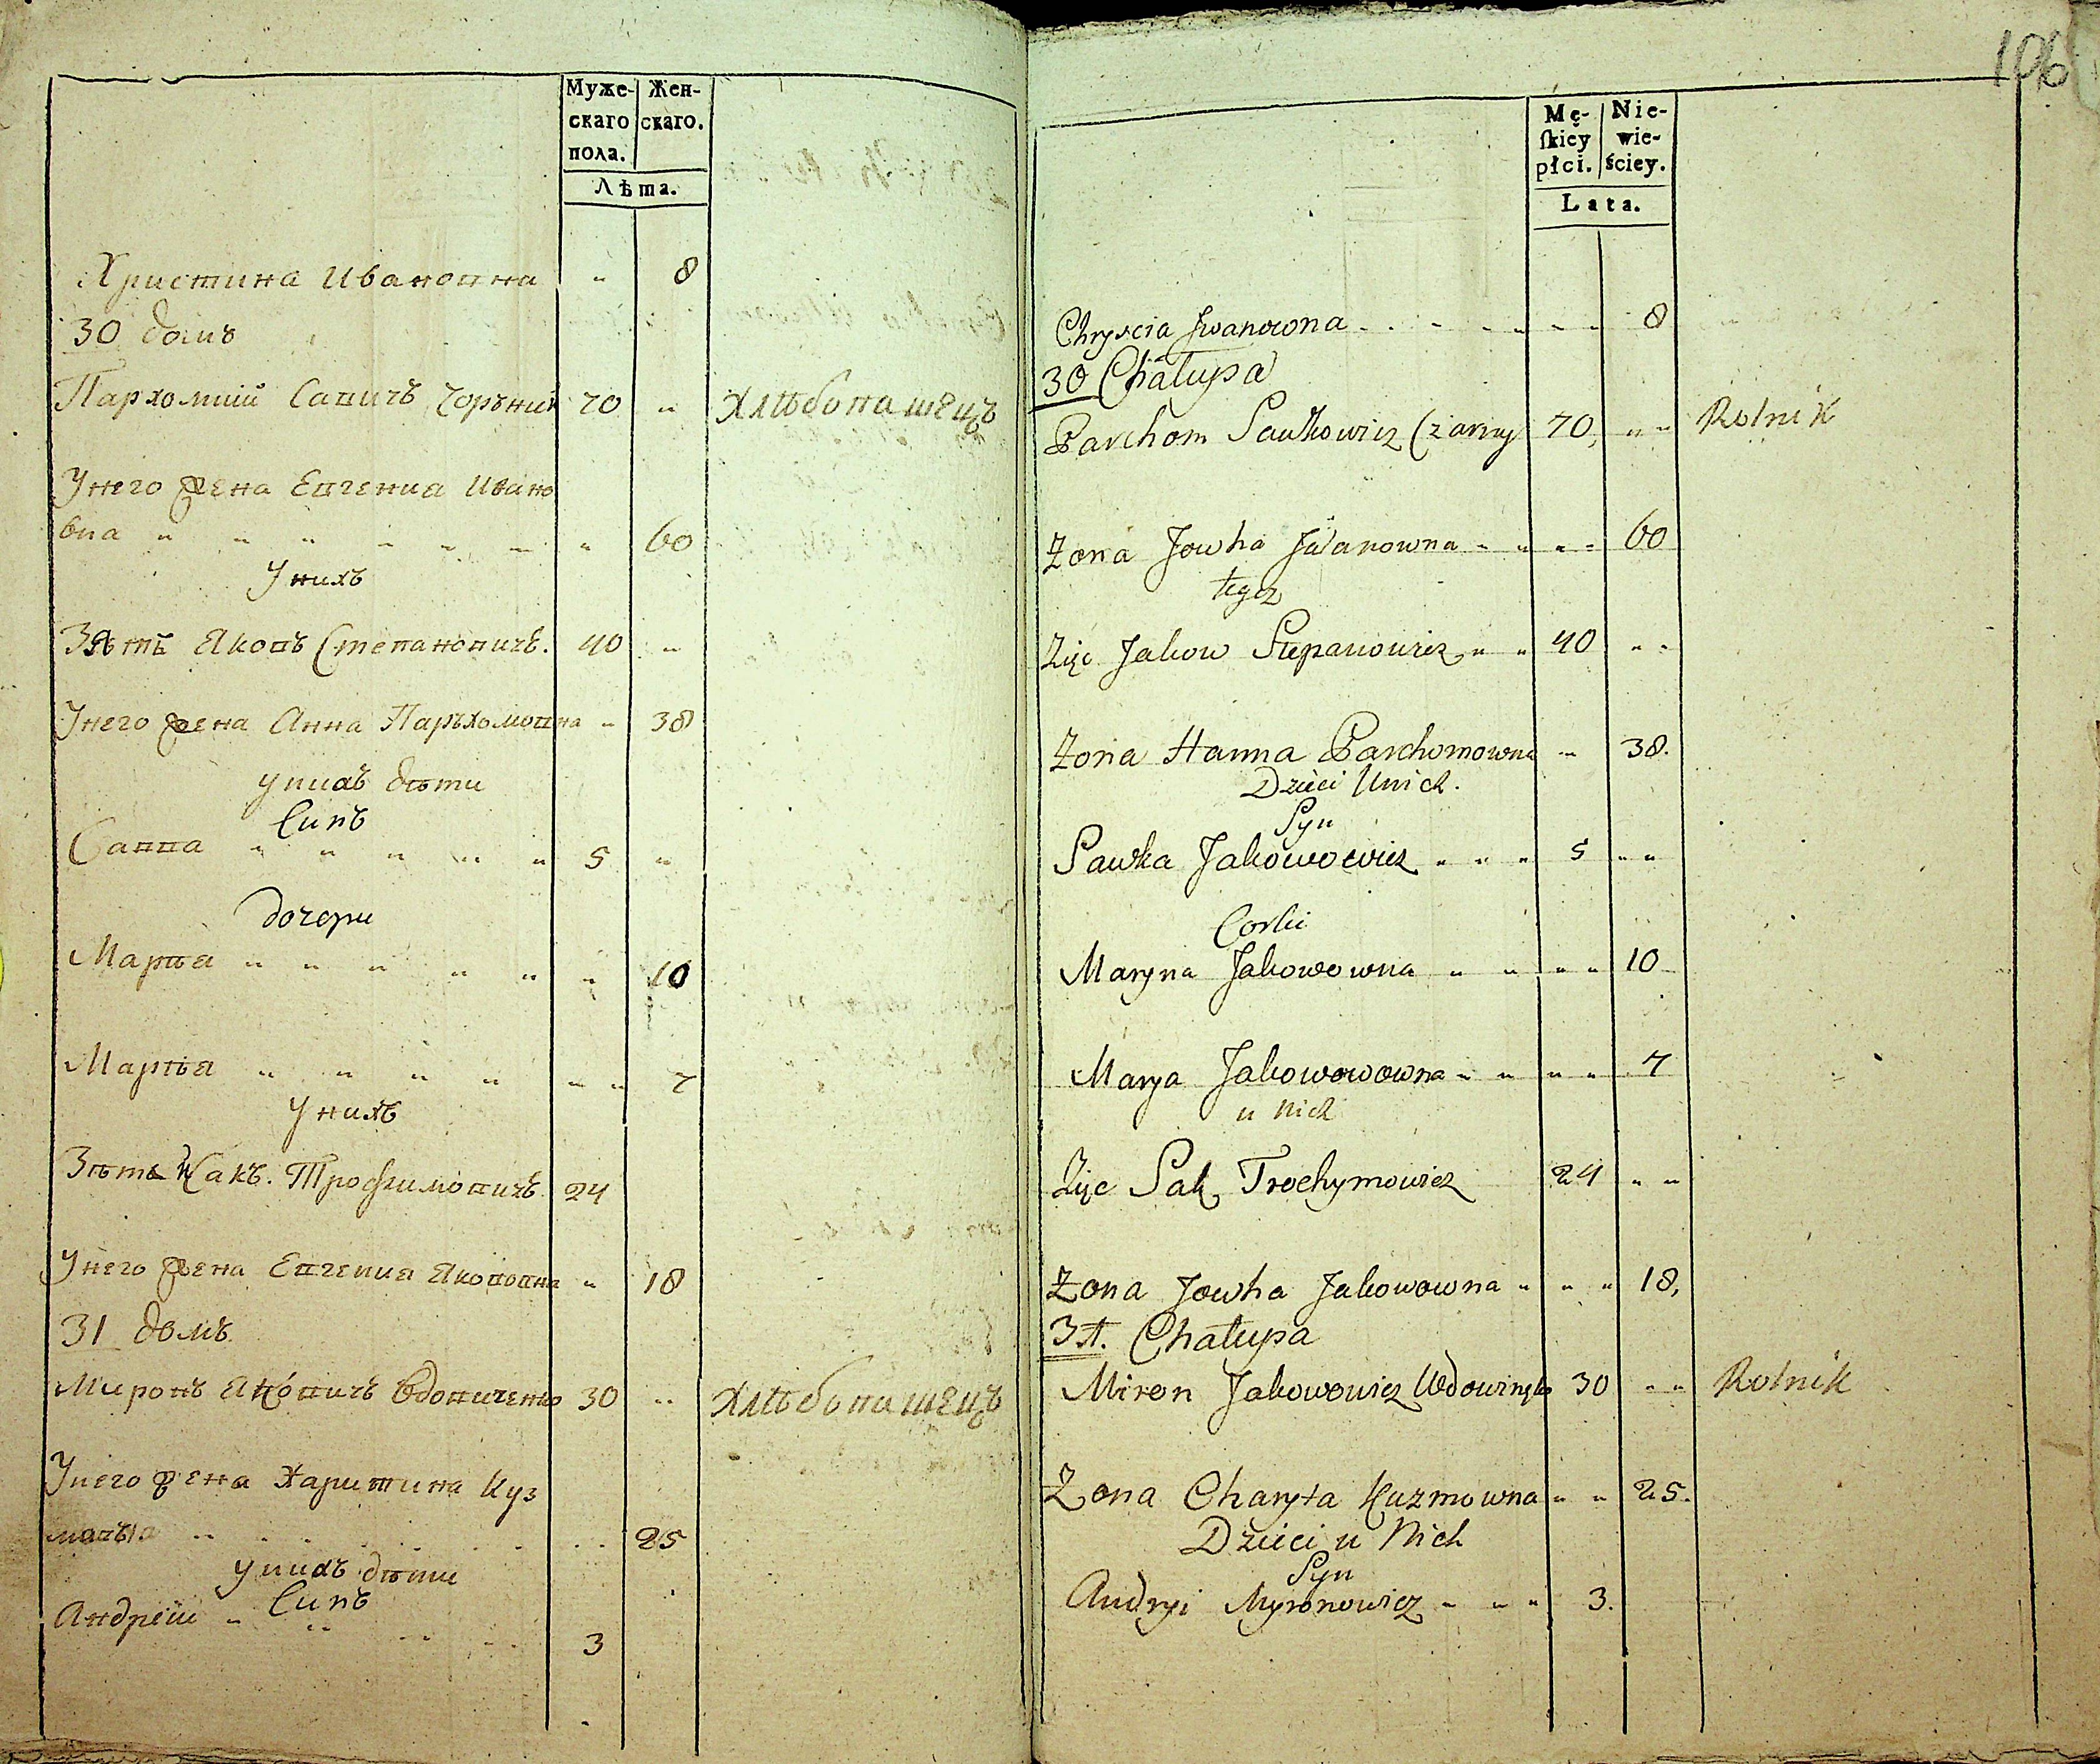 Муже-
скаго
пола.
Жен-
скаго.
Лѣта.
Христина Ивановна " 8
30 домъ
Пархомий Савичъ Чорний 70 " Хлѣбопашецъ
У него жена Евгениа Ивано
вна " " " " " " " 60
У нихъ
Зять Яковъ Степановичъ. 40 "
У него жена Анна Пархомовна " 38
у нихъ дѣти
Синъ
Савва " " " " " 5 "
дочери
Марѣа " " " " " " 10
Марѣа " " " " " " 7
У нихъ
Зѣть Исакъ. Трофимовичъ 24
У него жена Евгениа Яковвна " 18
31 домъ
Миронъ Яковичъ Вдовиченко 30 " Хлѣбопашецъ
У него жена Харитина Куз
25
у нихъ дѣти
Синъ
Андрей " " " " 3
106
Mę-
ſkiey
płci.
Nie-
wie-
ściey.
Lata.
Chryscia Jwanowna - - - - - - - 8
30 Chałupa
Parchom Sawkowicz Czarny 70, " " Rolnik
Żona Jowha Jwanowna " " " " 60
tegoz
Zięc Jakow Stepanowicz " " 40 " "
Żona Hanna Parchomowna " 38.
Dzieci Unich.
Syn
Sawka Jakowowicz " " " 5 " "
Corki
Maryna Jakowowna " " " " 10
Marya Jakowowowna " " " " 7
u nich
Zięc Sak Trochymowicz 24 " "
Żona Jowha Jakowowna " " " 18,
31. Chałupa
Miron Jakowowicz Wdowinko 30 " " Rolnik
Żona Charyta Kuzmowna " " 25.
Dzieci u Nich
Syn
Andryi Myronowicz " " " 3.